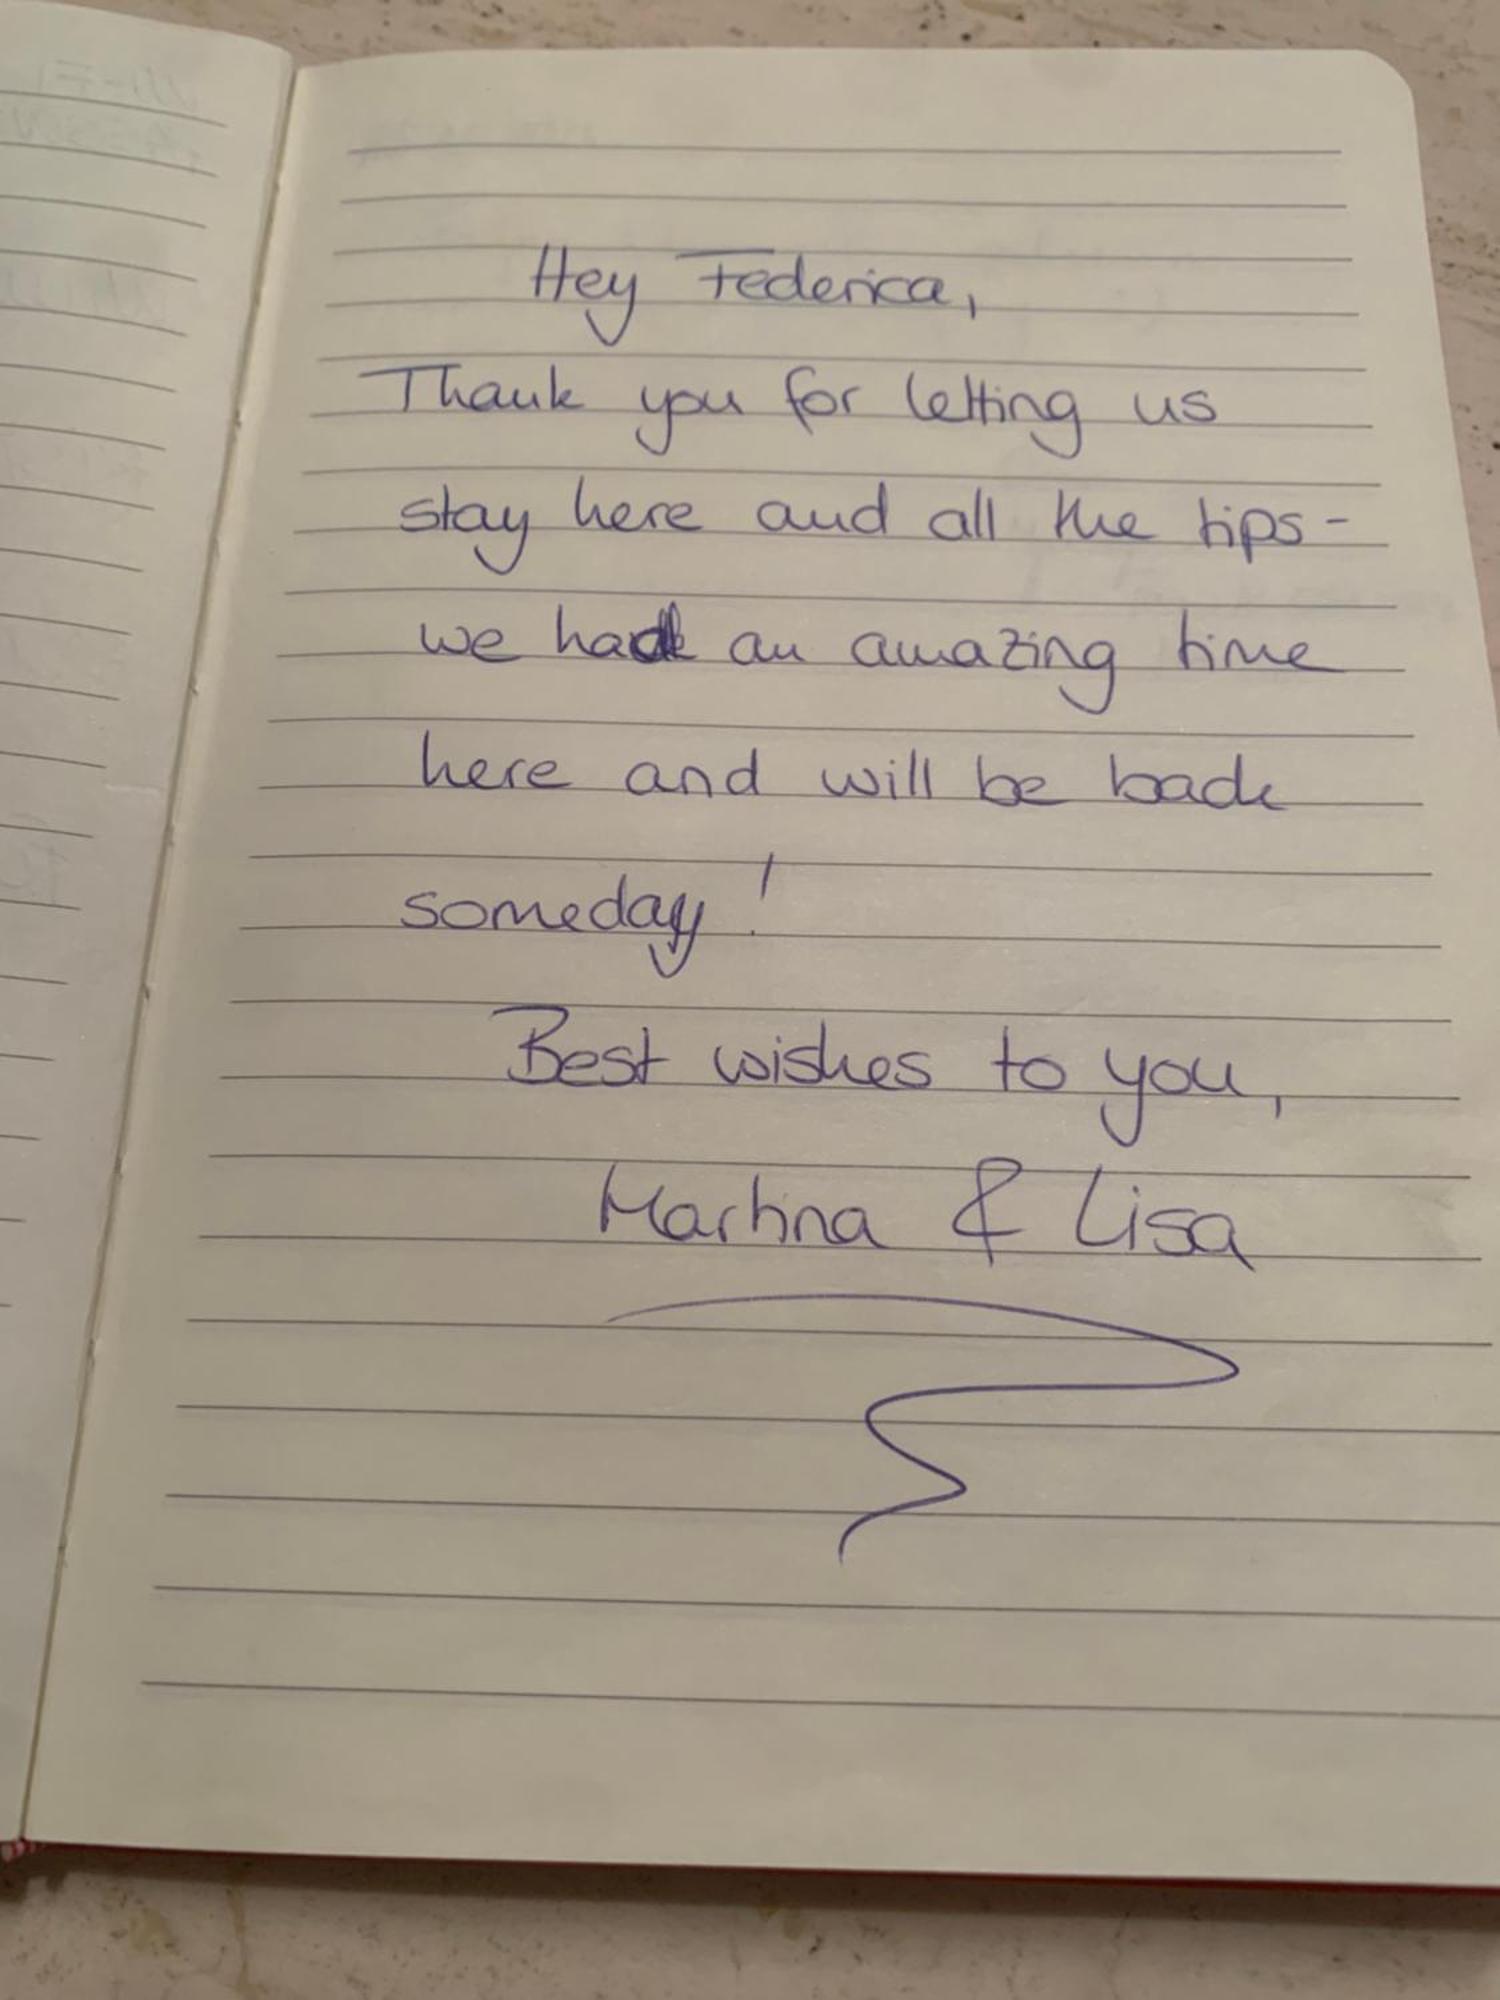 Hey Federica,
Thank you for letting us
stay here and all the tips -
we had an amazing time
here and will be back
someday!
Best wishes to you,
Martina & Lisa